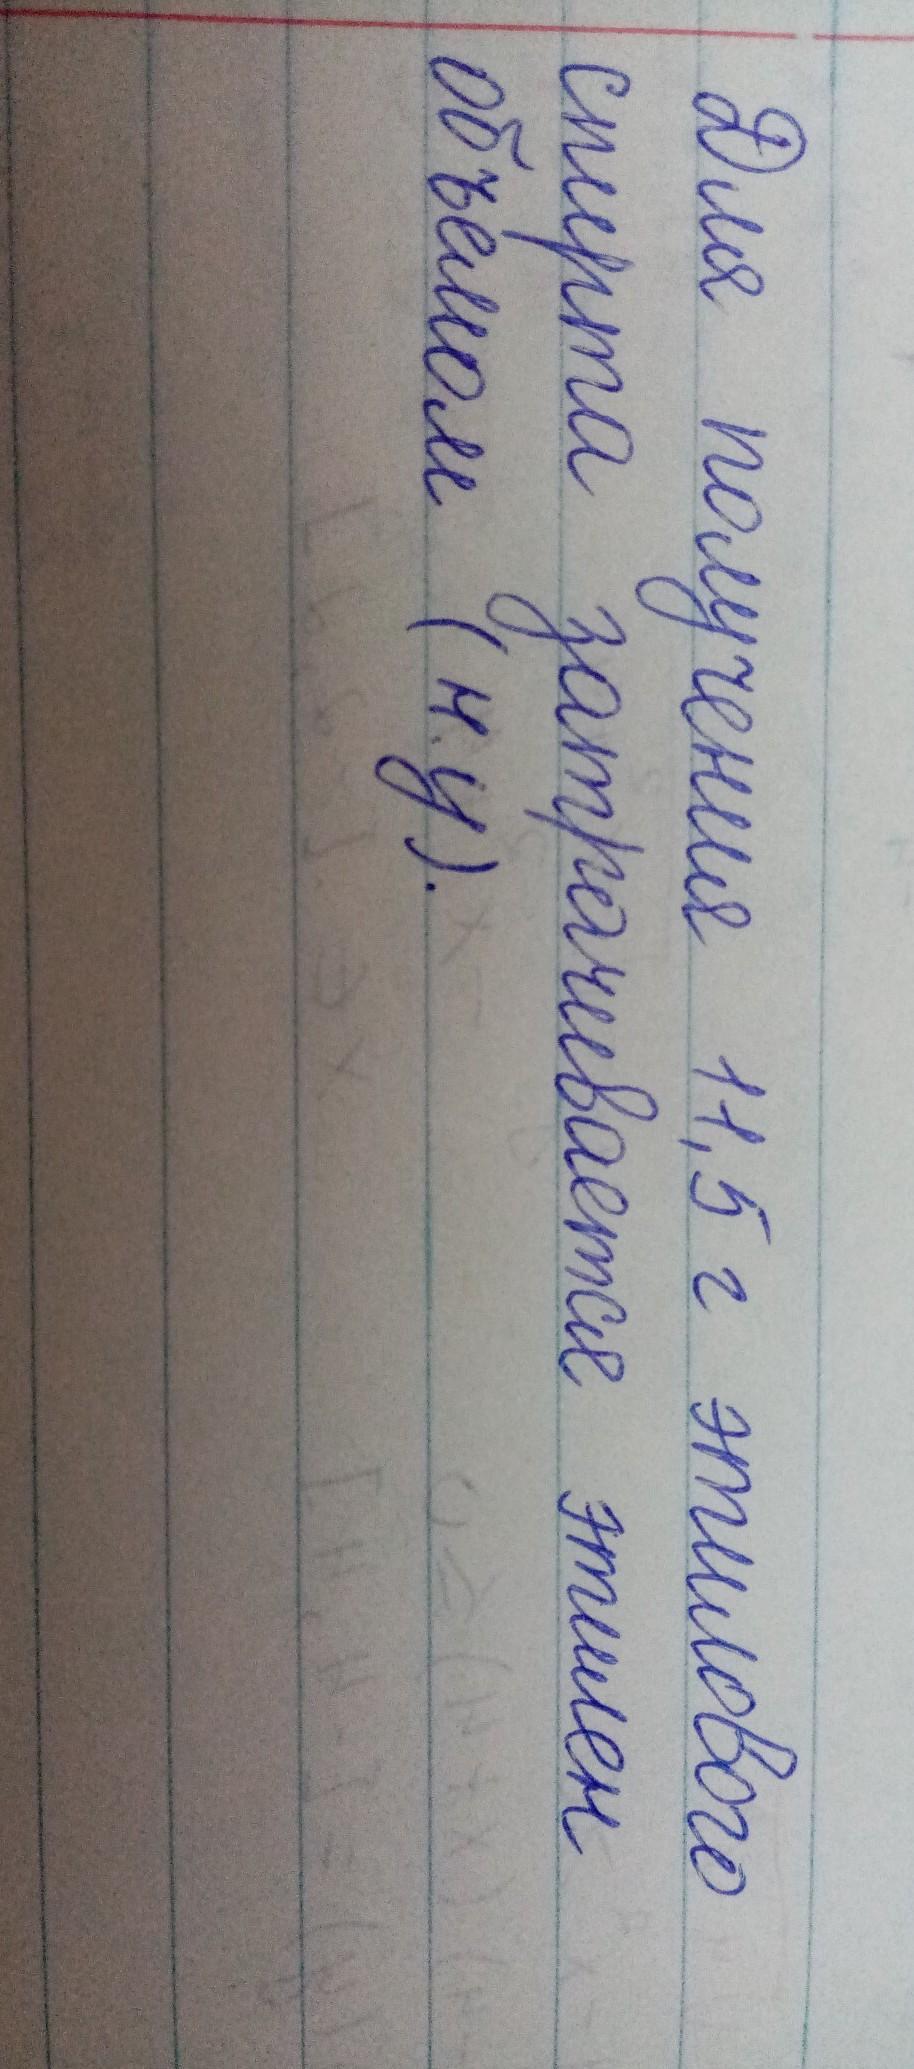 Для получения 11,5 г этилового
спирта затрачивается этилен
объемом (н.у).